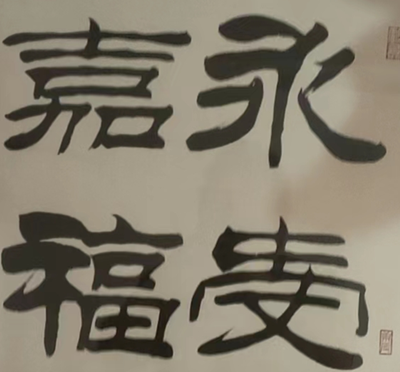 永受
嘉福